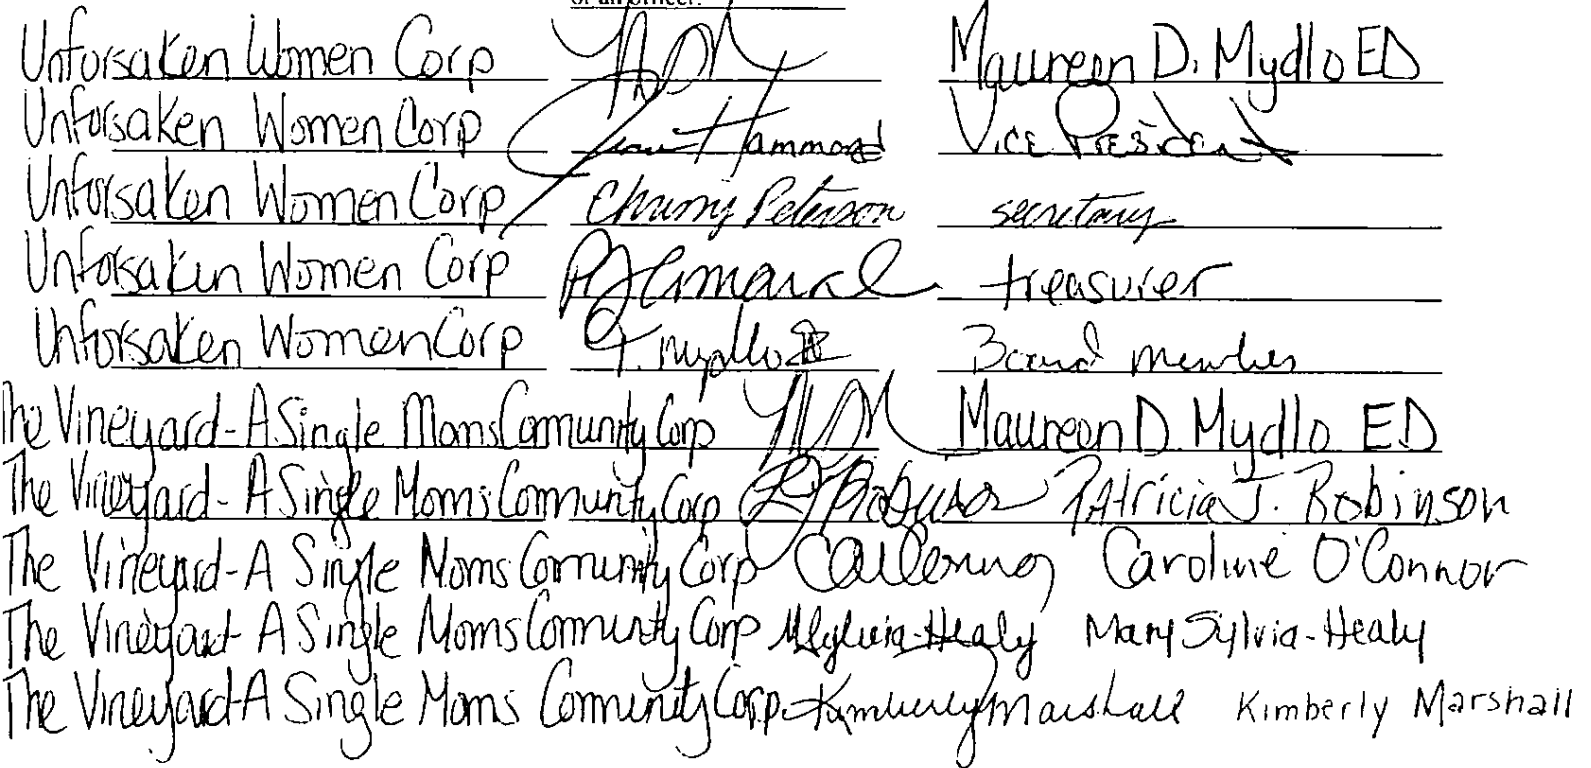 of an officer.
Unforsaken Women Corp Maureen D. Mydlo ED
Unforsaken Women Corp Hammond Vice President
Unforsaken Women Corp Peterson secretary
Unforsaken Women Corp treasurer
Unforsaken Women Corp T. Mydlo Board member
The Vineyard-A Single Moms Community Corp Maureen D. Mydlo ED
The Vineyard-A Single Moms Community Corp Patricia J. Robinson
The Vineyard-A Single Moms Community Corp Caroline O'Connor
The Vineyard-A Single Moms Community Corp MSylvia-Healy Mary Sylvia-Healy
The Vineyard-A Single Moms Community Corp Kimberly Marshall Kimberly Marshall